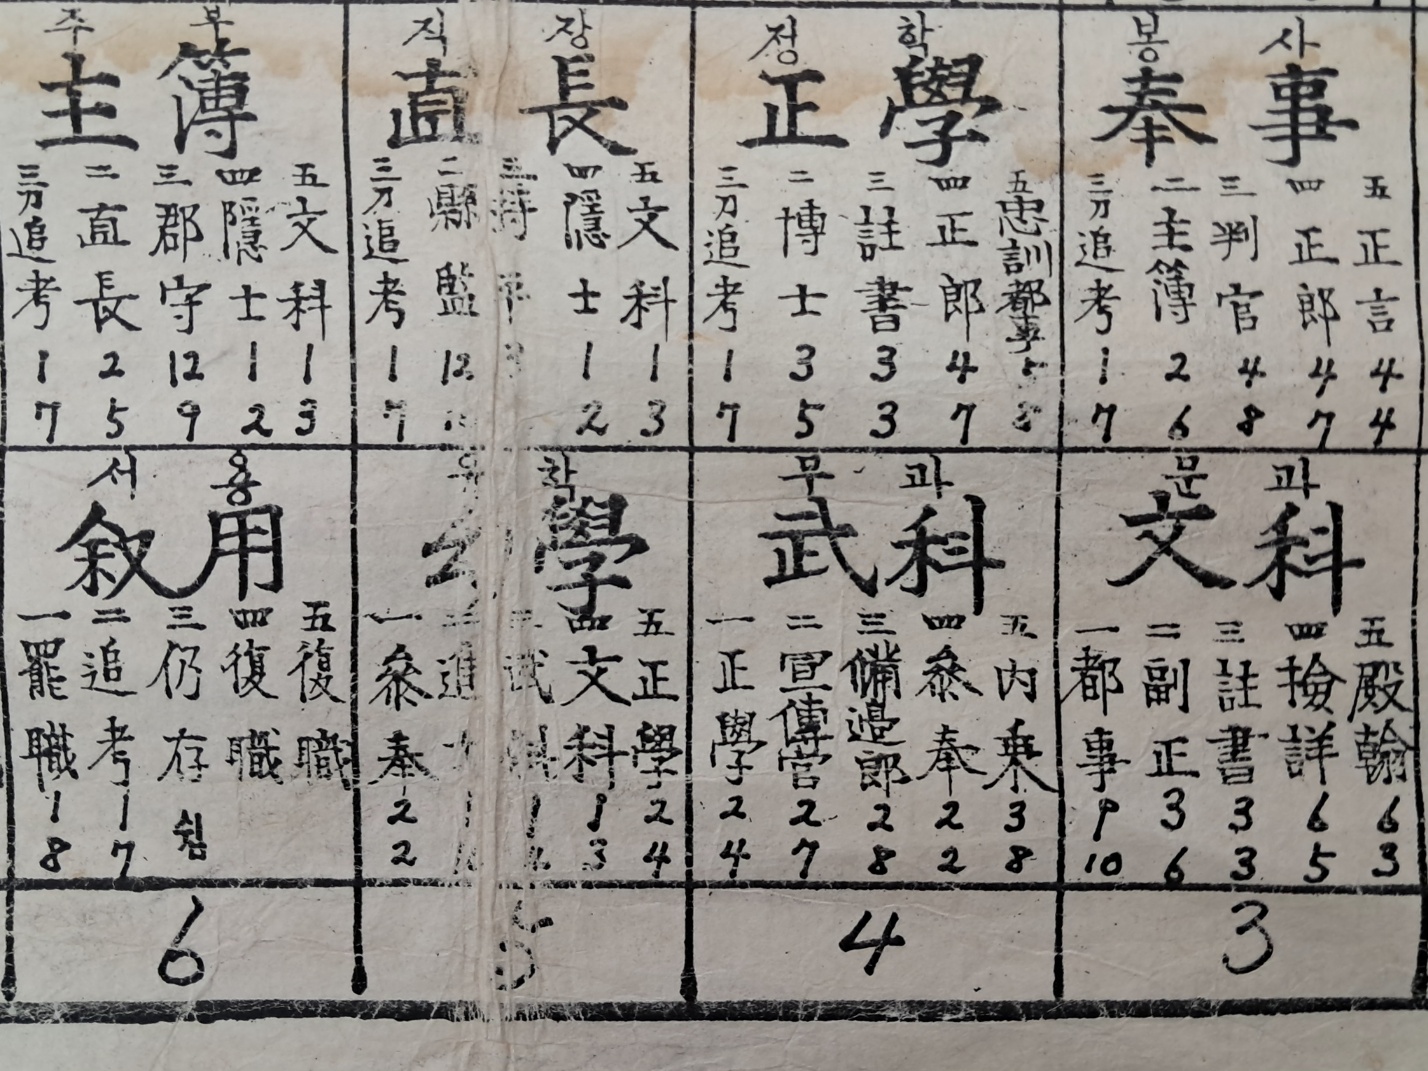 주 부
主 簿
三 二 三 四 五
刀追考 直長 郡守 隱士 文科
1 2 12 1 1
7 5 9 2 3
직 장
直 長
三 二 三 四 五
刀追考 縣監 隱士 文科
1 12 3 1 1
7 2 3
정 학
正 學
三 二 三 四 五
刀追考 博士 註書 正郎 忠訓都事
1 3 3 4 5
7 5 3 7 8
봉 사
奉 事
三 二 三 四 五
刀追考 主簿 判官 正郎 正言
1 2 4 4 4
7 6 8 7 4
서 용
敘 用
一 二 三 四 五
罷職 追考 仍存 復職 復職
1 1 쉼
8 7
유 학
幼 學
一 二 三 四 五
參奉 進士 武科 文科 正學
2 1 1 1 2
2 3 4
무 과
武 科
一 二 三 四 五
正學 宣傳官 備邉郎 參奉 內乗
2 2 2 2 3
4 7 8 2 8
문 과
文 科
一 二 三 四 五
都事 副正 註書 撿詳 殿翰
9 3 3 6 6
10 6 3 5 3
6 5 4 3